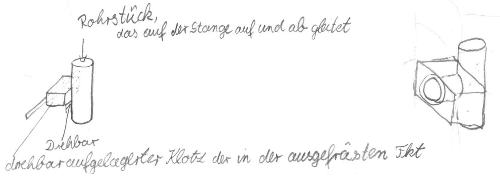 Rohrstück,
das auf der Stange auf und ab gleitet
Drehbar
drehbar aufgelagerter Klotz der in der ausgefrästen Fkt